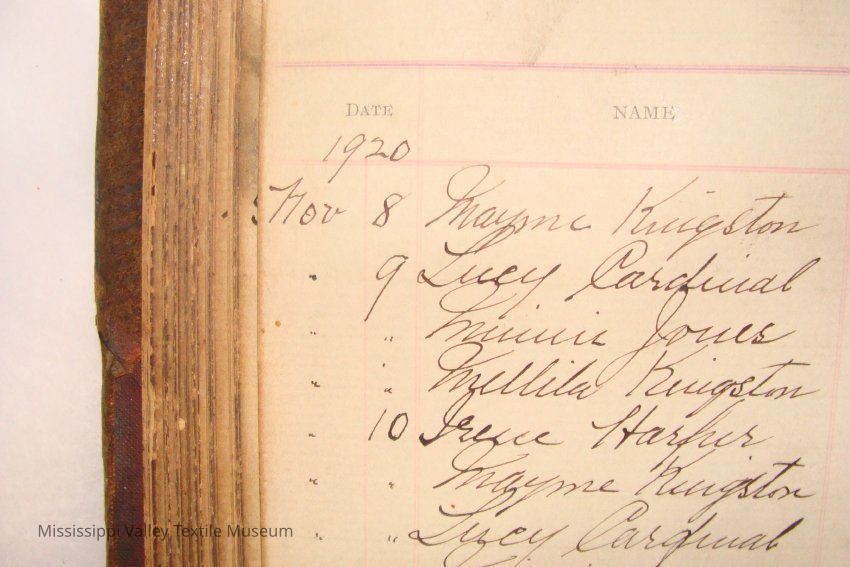 DATE NAME
1920
Nov 8 Mayme Kingston
" 9 Lucy Cardinal
" " Minnie Jones
" " Mellila Kingston
" 10 Irene Harper
" " Mayme Kingston
" " Lucy Cardinal
Mississippi Valley Textile Museum